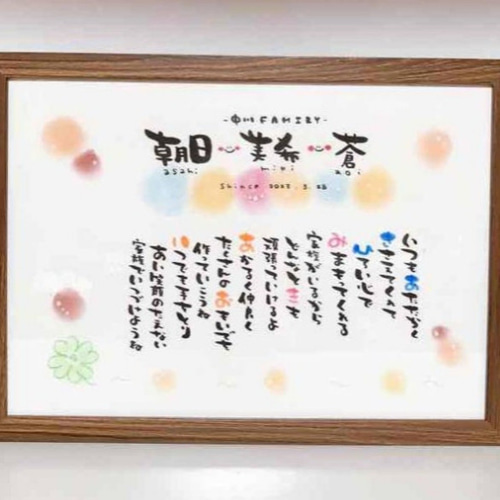 -中川 FAMILY-
朝日 美希 蒼
asahi miki aoi
いつもあたたかく
ささえてくれて
ひろい心で
みまもってくれる
家族がいるから
どんなときも
頑張っていけるよ
あかるく仲良く
たくさんのおもいでを
作っていこうね
いつでも手をとり
あい笑顔のたえない
家族でいつづけようね